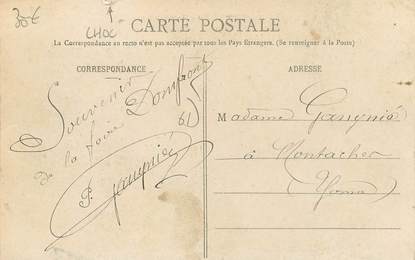 30€
CHOC
CARTE POSTALE
La Correspondance au recto n'est pas acceptée par tous les Pays Etrangers. (Se renseigner à la Poste)
CORRESPONDANCE
ADRESSE
Souvenir
de la foire Domfront
61
P. Gaugnié
Madame Gaugnié
à Montacher
(Yonne)